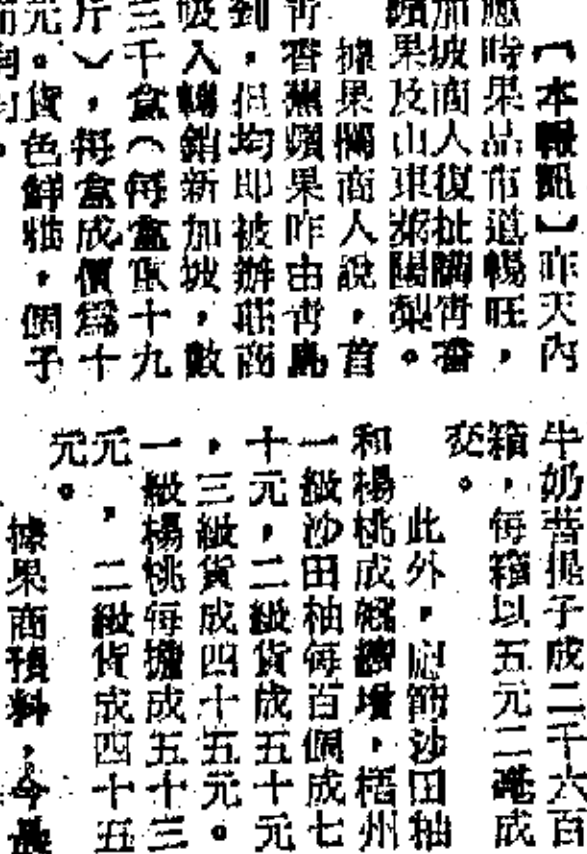 【本報訊】昨天內
應時果品市道暢旺，
加坡商人復扯購靑香
蘋果及山東萊陽梨。
據果欄商人說，首
靑香蕉蘋果昨由靑島
到，但均即被辦莊商
吸入轉銷新加坡，數
三千盒（每盒重十九
斤），每盒成價爲十
元。貨色鮮雅，個子
牛奶菩提子成二千六百
箱，每箱以五元二毫成
交。
此外，應節沙田柚
和楊桃成經續增，梧州
一級沙田柚每百個成七
十元，二級貨成五十元
，三級貨成四十五元。
一級楊桃每擔成五十三
元，二級貨成四十五
元。
據果商預料，今晨